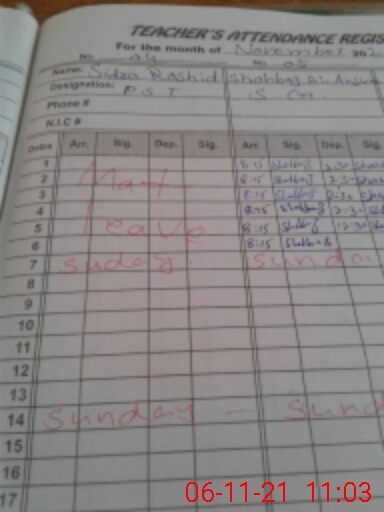 TEACHER'S ATTENDANCE REGIS
For the month of November 202
No. 04 No. 05
Name: Sidra Rashid Shahbaz Ali Anjum
Designation: P.S.T S.
Phone #
N.I.C #
Dates Arr. Sig. Dep. Sig. Arr. Sig. Dep. Sig.
1 8:15 Shahbaz 2:30
2 Mat 8:15 Shahbaz
3 8:15 Shahbaz
4 leave 8:15 Shahbaz
5 8:15 Shahbaz 12:30
6 8:15
7 suday. Sunda
8
9
10
11
12
13
14 Sunday — Sund
15
16
17
06-11-21 11:03